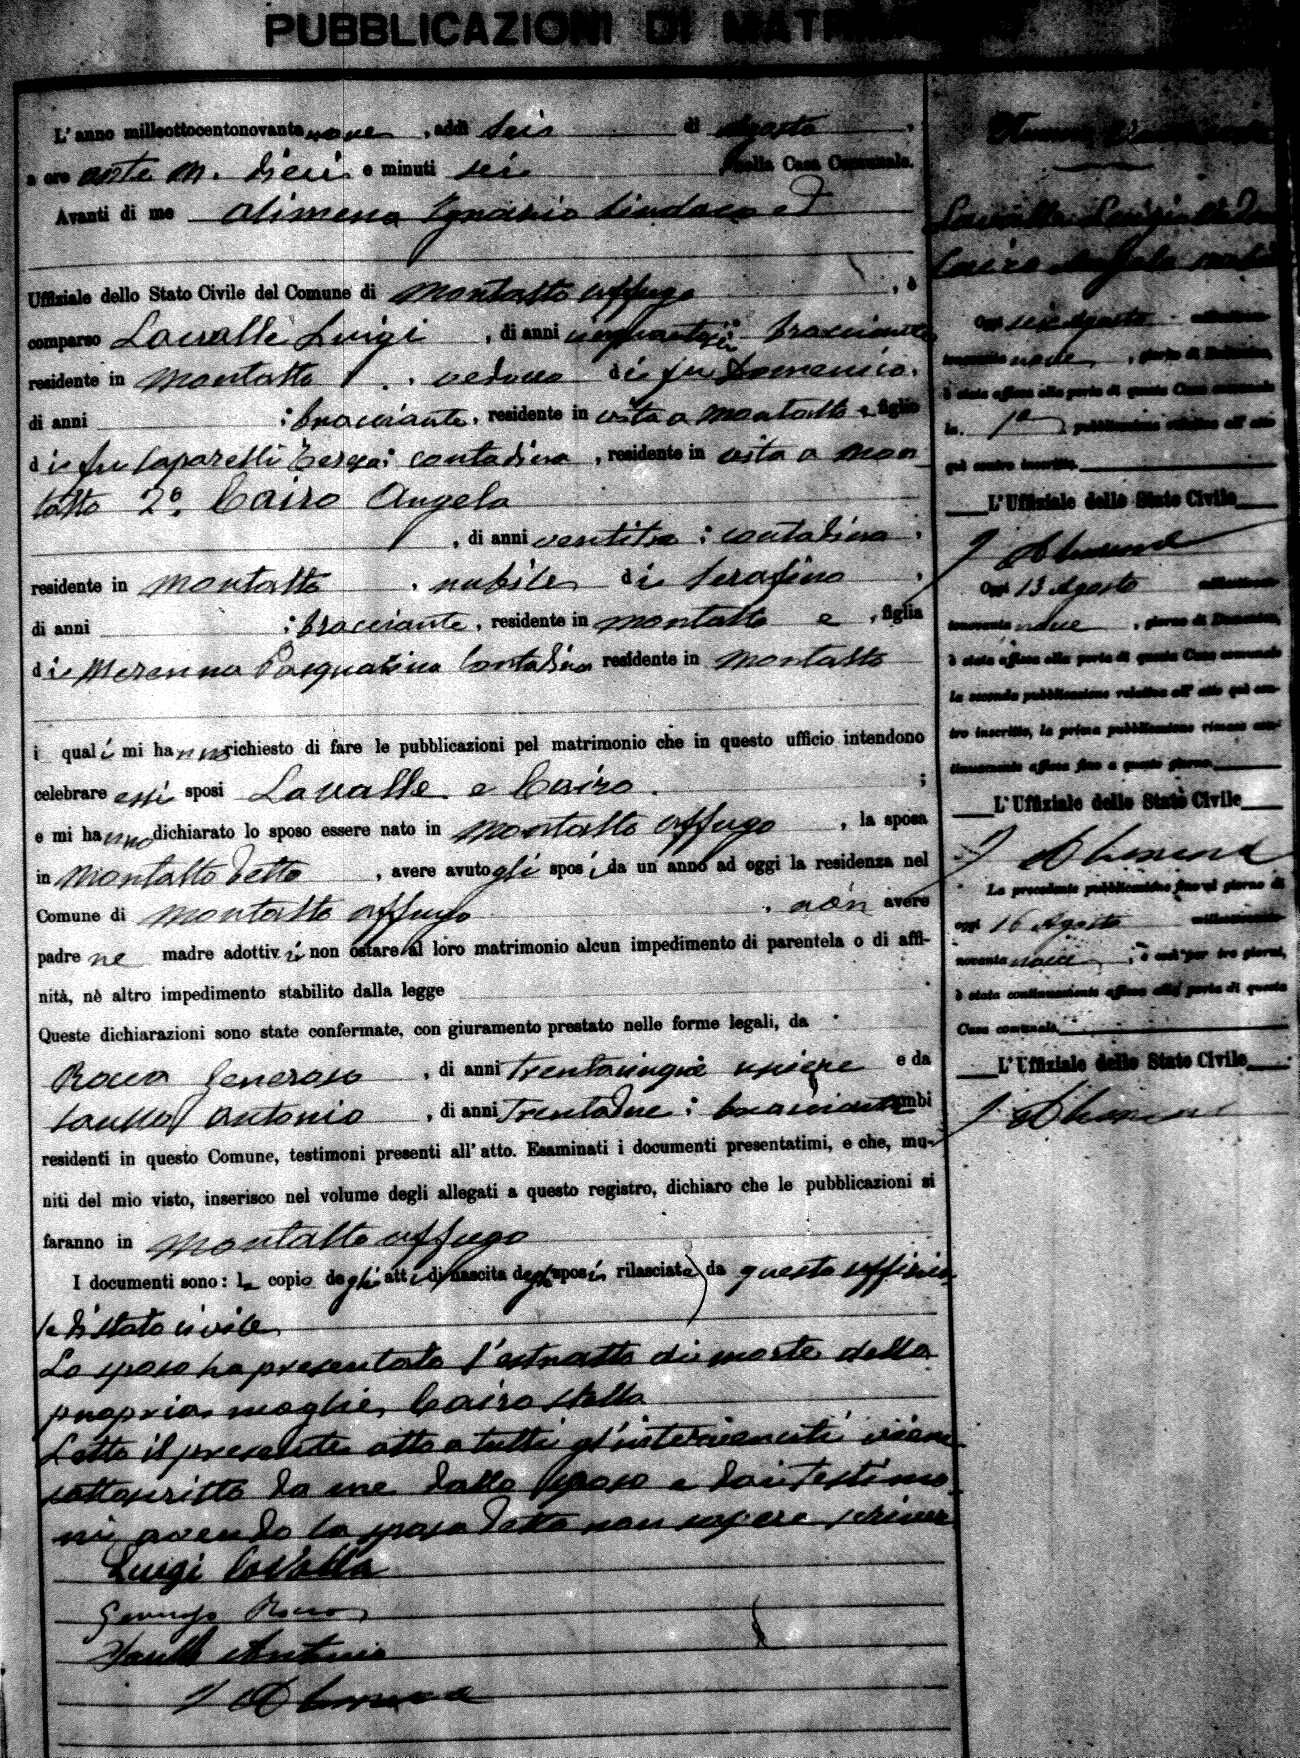 PUBBLICAZIONI DI
L'anno milleottocentonovantanove, addì seis di Agosto,
a ore ante m. dieci e minuti sei, nella Casa Comunale.
Avanti di me Alimena Ignazio Sindaco ed
Uffiziale dello Stato Civile del Comune di Montalto Uffugo, è
comparso Lavalle Luigi, di anni bracciante
residente in Montalto, vedovo di fu Domenico.
di anni ; bracciante, residente in vita a Montalto e, figlio
di fu Caparelli Teresa; contadina, residente in vita a Mon
talto 2º. Cairo Angela
, di anni ventitre; contadina,
residente in Montalto, nubile di Serafino,
di anni ; bracciante, residente in Montalto e, figlia
di Merenna Pasqualina Contadina residente in Montalto
i quali mi hanno richiesto di fare le pubblicazioni pel matrimonio che in questo ufficio intendono
celebrare essi sposi Lavalle e Cairo. ;
e mi hanno dichiarato lo sposo essere nato in Montalto Uffugo, la sposa
in Montalto detto, avere avuto gli sposi da un anno ad oggi la residenza nel
Comune di Montalto Uffugo, non avere
padre ne madre adottivi non ostare al loro matrimonio alcun impedimento di parentela o di affi-
nità, nè altro impedimento stabilito dalla legge
Queste dichiarazioni sono state confermate, con giuramento prestato nelle forme legali, da
Rocca Generoso, di anni trentacinque usciere e da
Saullo Antonio, di anni trentadue; bracciante ambi
residenti in questo Comune, testimoni presenti all'atto. Esaminati i documenti presentatimi, e che, mu-
niti del mio visto, inserisco nel volume degli allegati a questo registro, dichiaro che le pubblicazioni si
faranno in Montalto Uffugo
I documenti sono: le copie degli atti di nascita degli sposi, rilasciate da questo uffizio
di stato civile
Lo sposo ha presentato l'estratto di morte della
propria moglie, Cairo Stella
Letto il presente atto a tutti gl'intervenuti viene
sottoscritto da me dallo sposo e dai testimo
ni avendo la sposa detto non sapere scrivere
Luigi Lavalle
Generoso Rocca
Saullo Antonio
I Alimena
Lavalle Luigi
Cairo Angela
Oggi sei Agosto milleottocen-
tonovanta nove, giorno di Domenica,
è stata affissa alla porta di questa Casa comunale
la 1a pubblicazione relativa all'atto
quì contro inscritto.
L'Uffiziale dello Stato Civile
I Alimena
Oggi 13 Agosto milleottocen-
tonovanta nove, giorno di Domenica,
è stata affissa alla porta di questa Casa comunale
la seconda pubblicazione relativa all'atto quì con-
tro inscritto, la prima pubblicazione rimase con-
tinuamente affissa fino a questo giorno.
L'Uffiziale dello Stato Civile
I Alimena
La precedente pubblicazione fino al giorno di
oggi 16 Agosto milleottocento-
novanta nove, e così per tre giorni,
è stata continuamente affissa alla porta di questa
Casa comunale.
L'Uffiziale dello Stato Civile
I Alimena